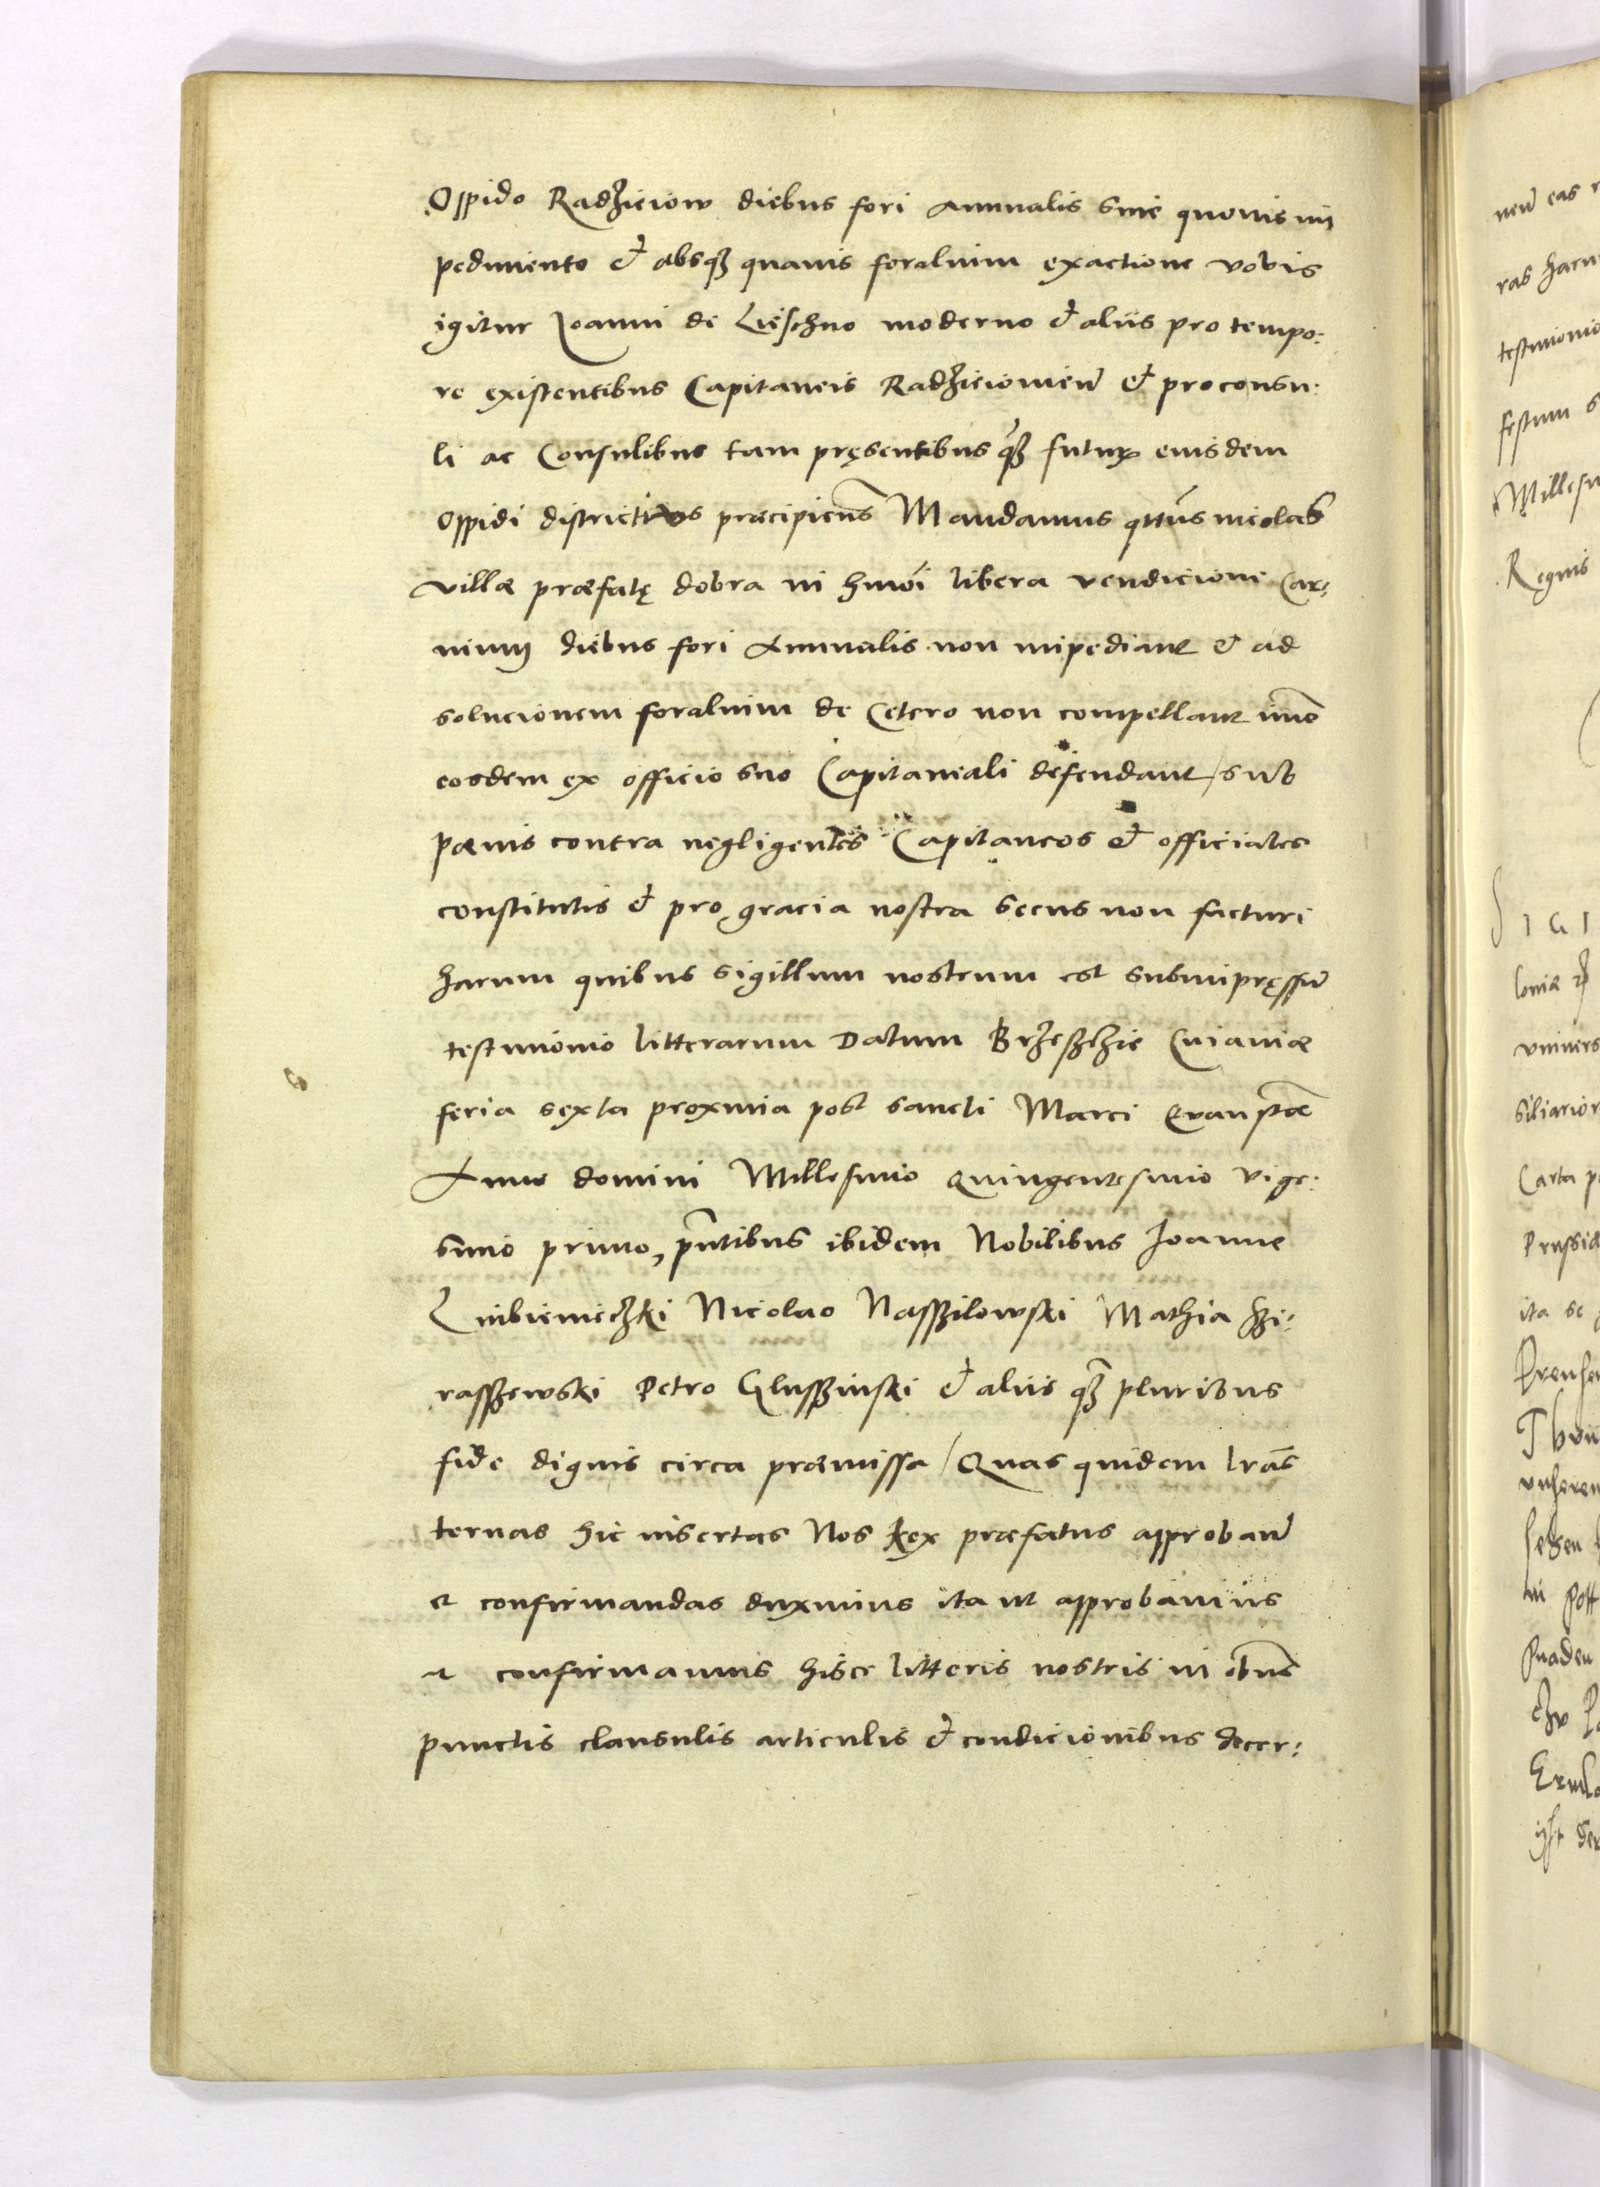 Oppido Radzieiow diebus fori Annualis sine quouis im
pedimento et absqꝫ quauis foralium exactione vobis
igitur Joanni de Lieschno moderno et aliis pro tempo:
re existentibus Capitaneis Radzieiouien̄ et proconsu:
li ac Consulibus tam pręsentibus qꝫ futuꝝ eiusdem
Oppidi districtius præcipien̄s Mandamus qttūs incolas
villæ præfatę dobra in hmōi libera vendicione Car:
nium diebus fori Annualis non impediant et ad
solucionem foralium de cetero non compellant imō
eosdem ex officio suo Capitaneali defendant / sub
pænis contra negligentes Capitaneos et officiales
constitutis et pro gracia nostra secus non facturi
harum quibus sigillum nostrum est subimpręssū
testimonio litterarum Datum Brzeszczie Cuiauiæ
feria sexta proxima post sancti Marci Euanstæ
Anno domini Millesimo Quingentesimo vige:
simo primo, pn̄tibus ibidem Nobilibus Joanne
Lubienieczki Nicolao Nasszilowski Mathia
rasszewski Petro Glusszinski et aliis qꝫ pluribus
fide dignis circa præmissa / Quas quidem lrās
ternas hic insertas Nos Rex præfatus approban̄
et confirmandas duximus ita ut approbamus
et confirmamus hisce litteris nostris in oībus
punctis clausulis articulis et condicionibus decer:
neñ eas
ras harum
testimonio
festum
Millesi
Regnis
SIGI
loniæ
vniuers
siliarior
Carta
Prussiæ
ita se